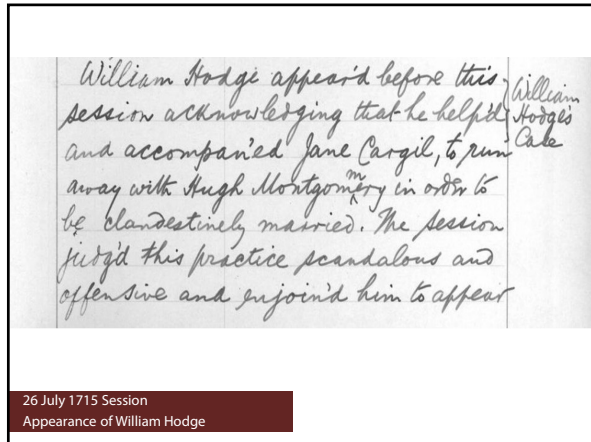 William Hodge appear'd before this
session acknowledging that he help'd
and accompan'ed Jane Cargil, to run
away with Hugh Montgomery in order to
be clandestinely married. The session
judg'd this practice scandalous and
offensive and enjoin'd him to appear
William
Hodge's
Case
26 July 1715 Session
Appearance of William Hodge